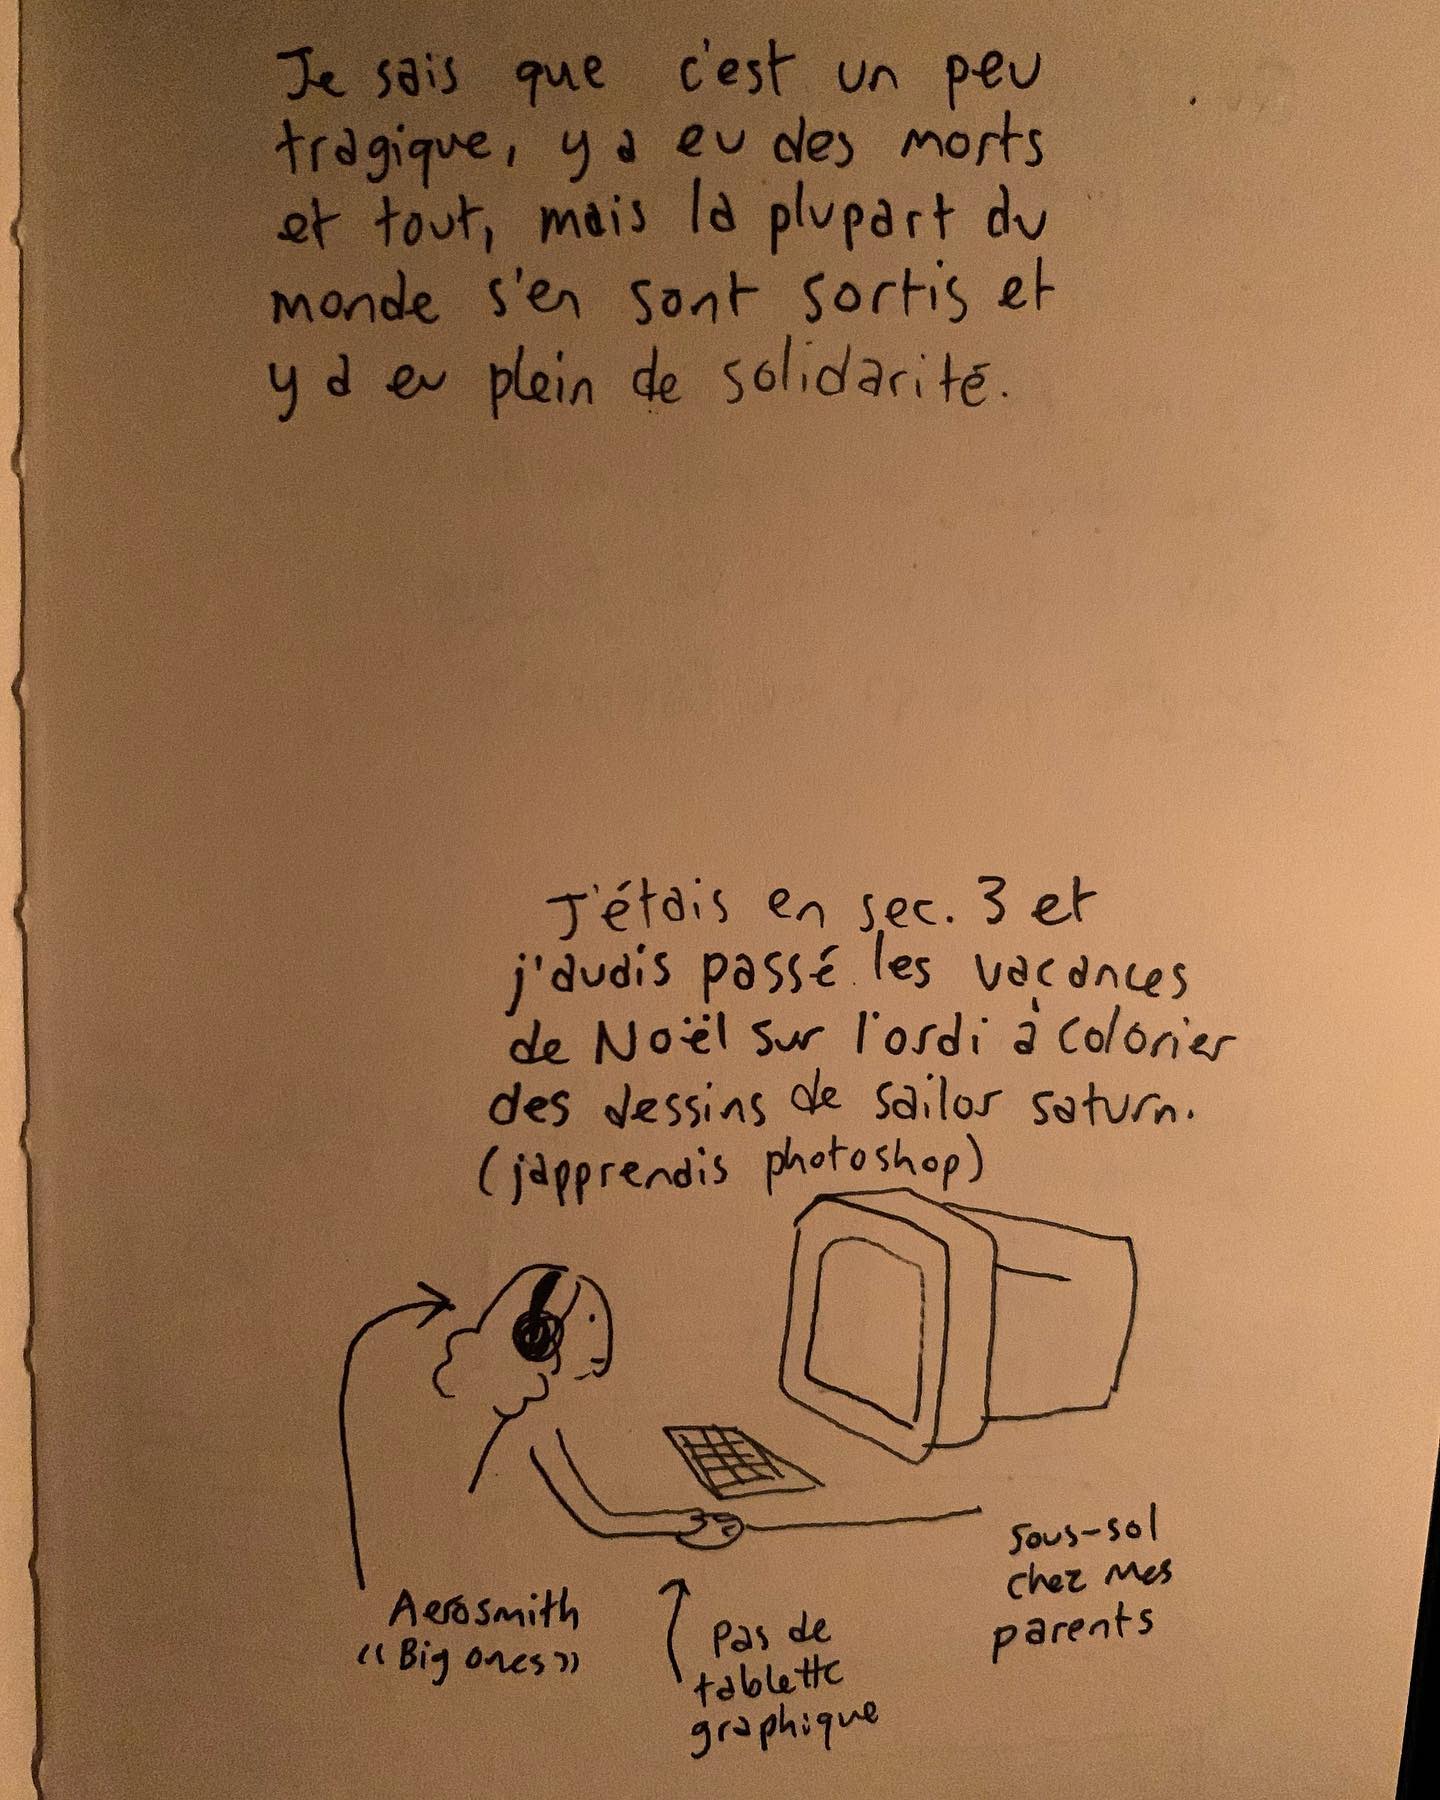 Je sais que c'est un peu
tragique, y a eu des morts
et tout, mais la plupart du
monde s'en sont sortis et
y a eu plein de solidarité.
J'étais en sec. 3 et
j'avais passé les vacances
de Noël sur l'ordi à colorier
des dessins de sailor saturn.
(j'apprenais photoshop)
Aerosmith
"Big ones"
Pas de
tablette
graphique
sous-sol
chez mes
parents